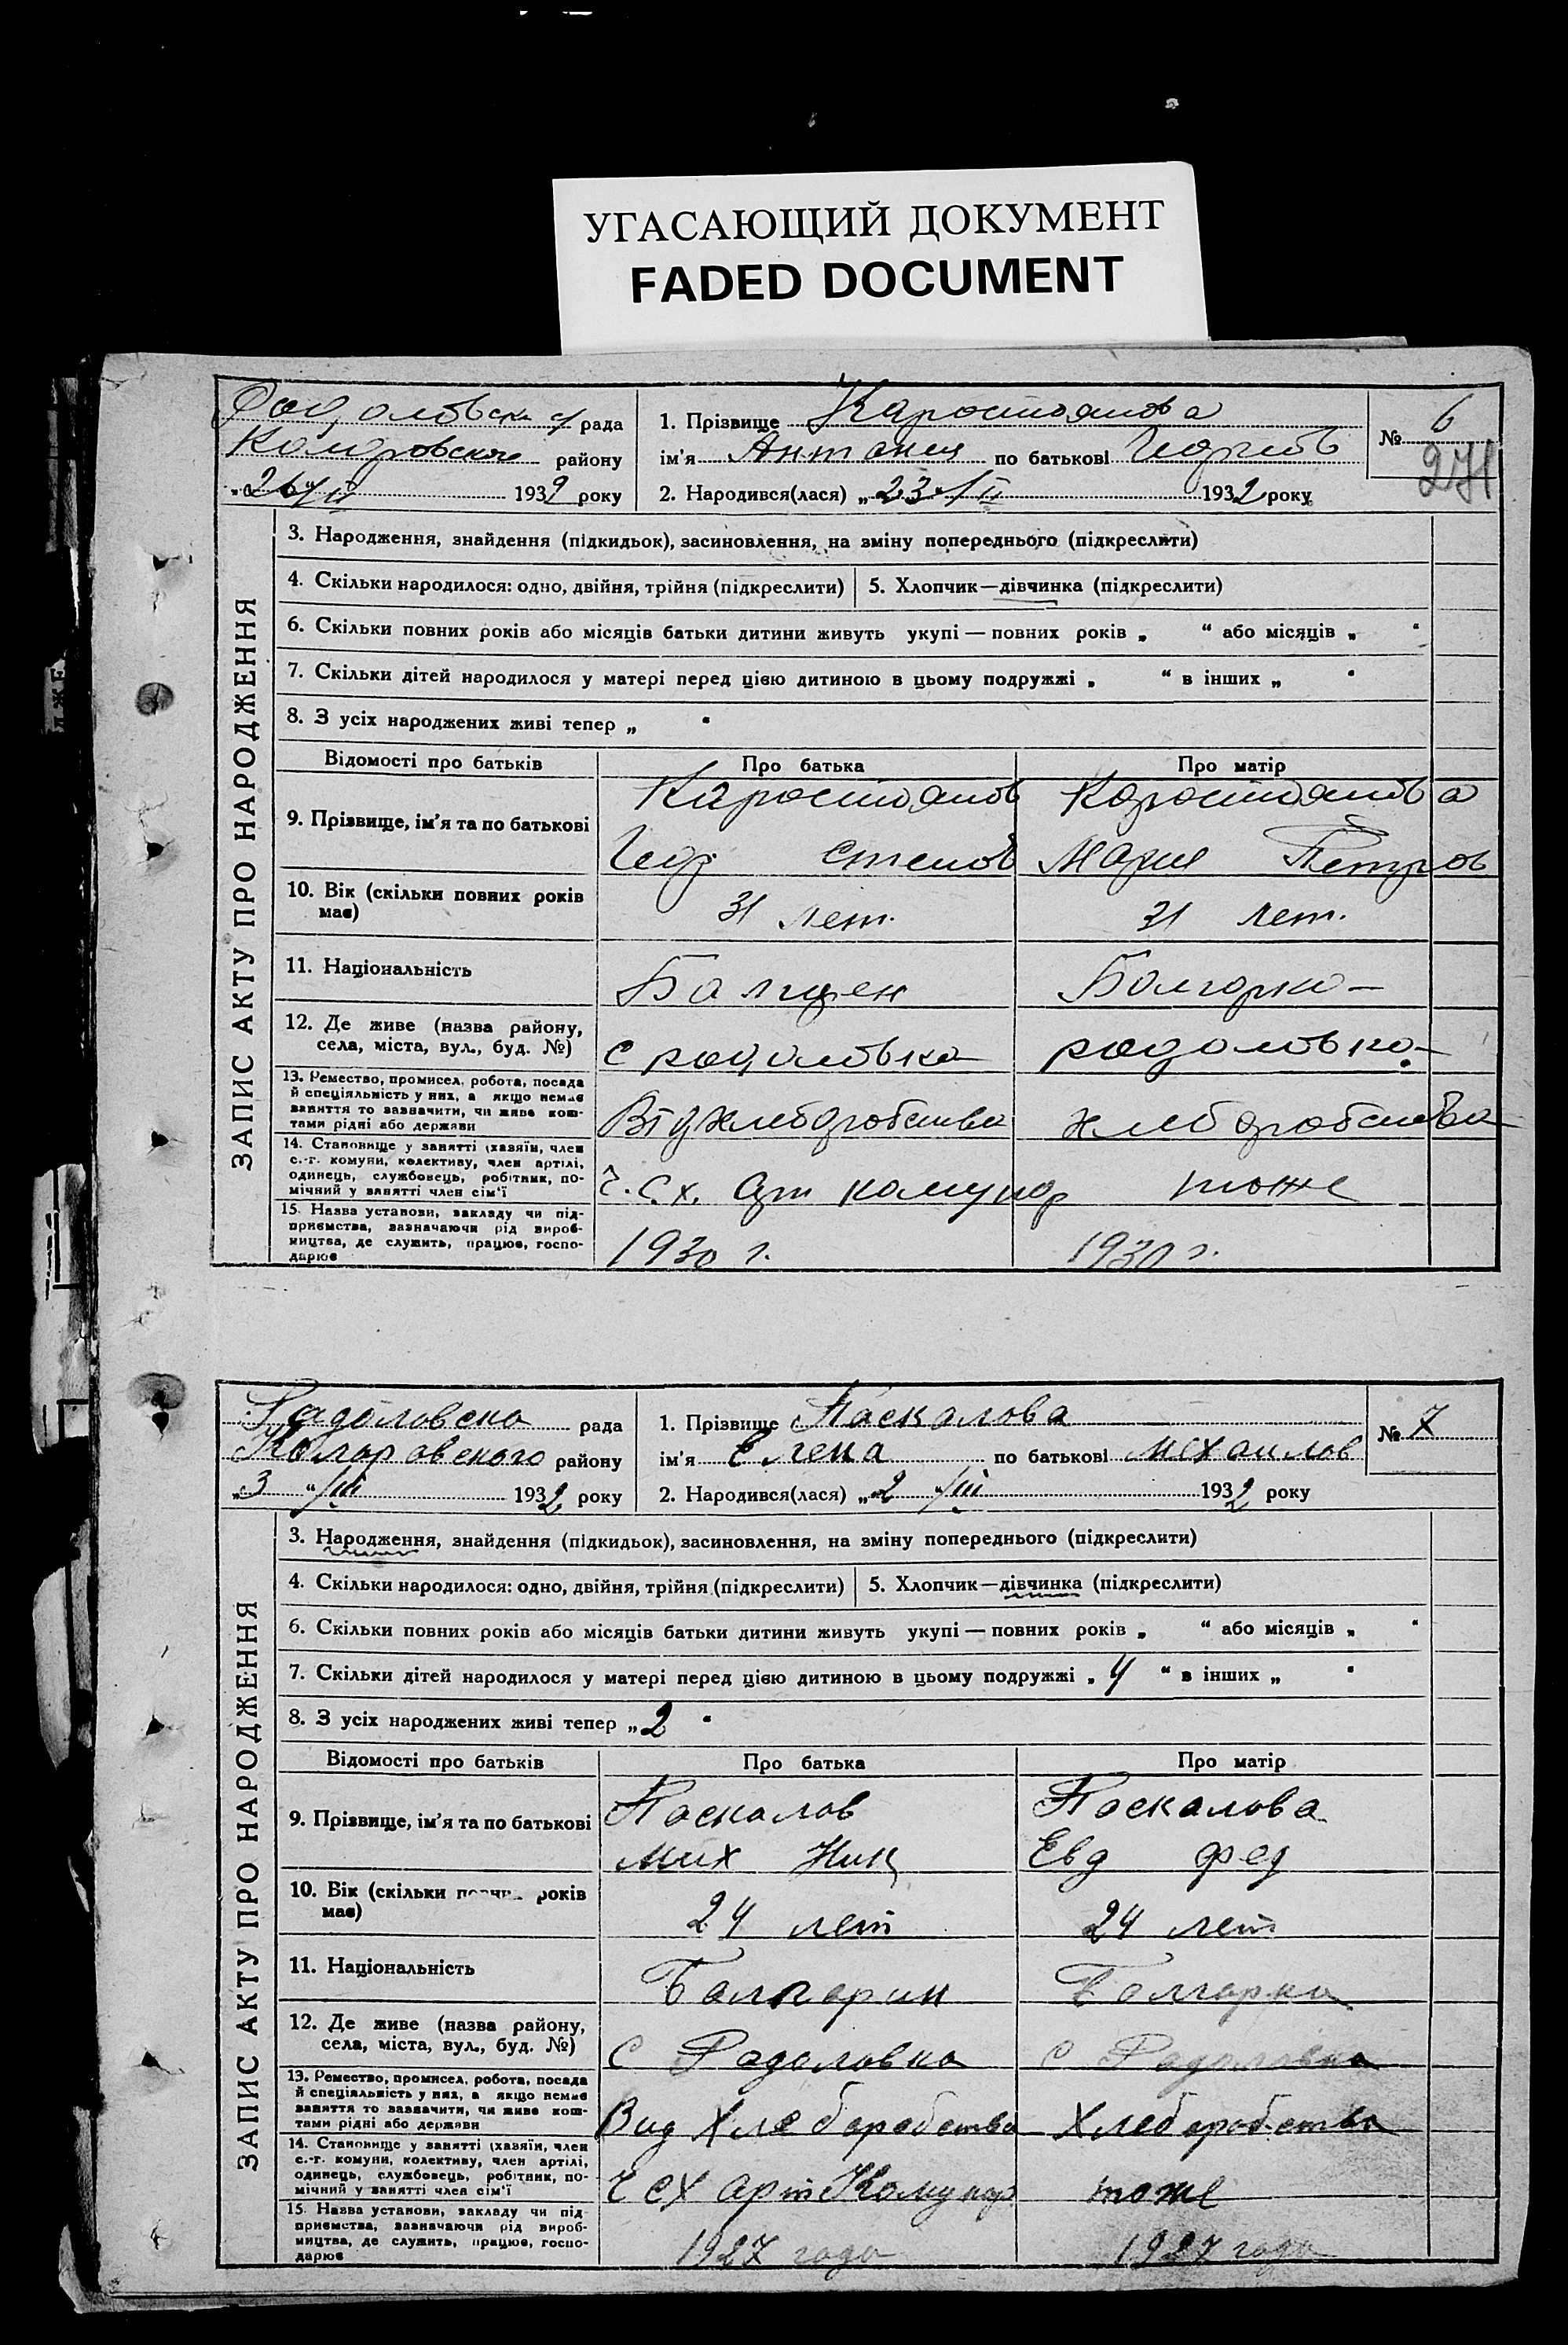 УГАСАЮЩИЙ ДОКУМЕНТ
FADED DOCUMENT
Радоловска с/ рада
Коларовского району
„26“/II 1932 року
1. Прізвище Каростоянова
ім'я Антонина по батькові Георгиев
2. Народився(лася) „23“/II 1932 року
№ 6
271
ЗАПИС АКТУ ПРО НАРОДЖЕННЯ
3. Народження, знайдення (підкидьок), засиновлення, на зміну попереднього (підкреслити)
4. Скільки народилося: одно, двійня, трійня (підкреслити)
5. Хлопчик—дівчинка (підкреслити)
6. Скільки повних років або місяців батьки дитини живуть укупі — повних років „ “ або місяців „ “
7. Скільки дітей народилося у матері перед цією дитиною в цьому подружжі „ “ в інших „ “
8. З усіх народжених живі тепер „ “
Відомості про батьків Про батька Про матір
9. Прізвище, ім'я та по батькові
Каростоянов Каростоянова
Геор Степов Мария Петров
10. Вік (скільки повних років має)
31 лет. 31 лет.
11. Національність
Болгарка –
12. Де живе (назва району, села, міста, вул., буд. №)
с радоловка радоловка
13. Ремество, промисел, робота, посада
й спеціяльність у них, а якщо немає
заняття то зазначити, чи живе кош-
тами рідні або держави
хлеборобства
14. Становище у занятті (хазяїн, член
с.-г. комуни, колективу, член артілі,
одинець, службовець, робітник, по-
мічний у занятті член сім'ї
Ч. С.х. арт комунар тоже
15. Назва установи, закладу чи під-
приємства, зазначаючи рід вироб-
ництва, де служить, працює, госпо-
дарює
1930 г. 1930 г.
Радоловска рада
Коларовского району
„3“/III 1932 року
1. Прізвище Паскалова
ім'я Елена по батькові Михаилов
2. Народився(лася) „2“/III 1932 року
№ 7
ЗАПИС АКТУ ПРО НАРОДЖЕННЯ
3. Народження, знайдення (підкидьок), засиновлення, на зміну попереднього (підкреслити)
4. Скільки народилося: одно, двійня, трійня (підкреслити)
5. Хлопчик—дівчинка (підкреслити)
6. Скільки повних років або місяців батьки дитини живуть укупі — повних років „ “ або місяців „ “
7. Скільки дітей народилося у матері перед цією дитиною в цьому подружжі „ 4 “ в інших „ “
8. З усіх народжених живі тепер „ 2 “
Відомості про батьків Про батька Про матір
9. Прізвище, ім'я та по батькові
Паскалов Паскалова
Мих Ник Евд Фед
10. Вік (скільки повних років має)
24 лет 24 лет
11. Національність
Болгарин Болгарка
12. Де живе (назва району, села, міста, вул., буд. №)
С Радоловка С Радоловка
13. Ремество, промисел, робота, посада
й спеціяльність у них, а якщо немає
заняття то зазначити, чи живе кош-
тами рідні або держави
Вид Хлеборобства Хлеборобства
14. Становище у занятті (хазяїн, член
с.-г. комуни, колективу, член артілі,
одинець, службовець, робітник, по-
мічний у занятті член сім'ї
Ч СХ арт Комунар тоже
15. Назва установи, закладу чи під-
приємства, зазначаючи рід вироб-
ництва, де служить, працює, госпо-
дарює
1927 года 1927 года